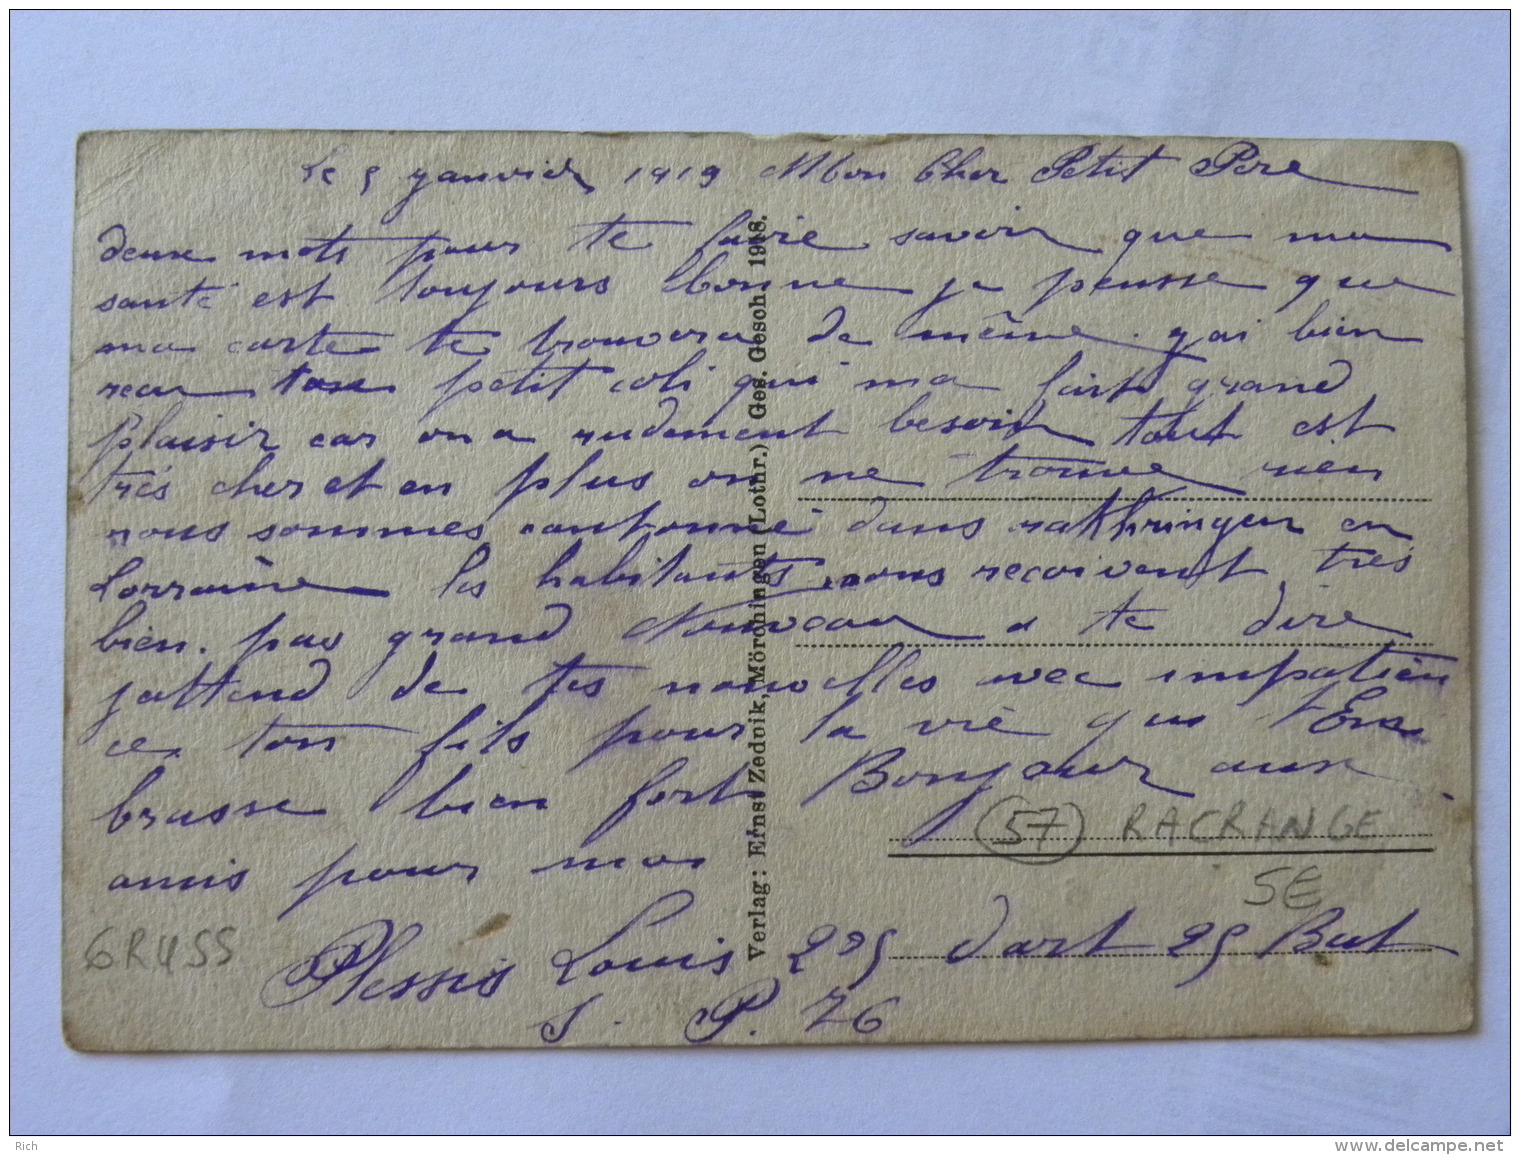 Le 5 ganvier 1919 Mon Cher Petit Pere
deux mots pour te faire savoir que ma
santé est toujours bonne je pensse que
ma carte te trouvera de même. gai bien
recu ton petit coli qui ma fait grand
plaisir car on a rudement besoin tout est
très cher et en plus on ne trouve rien
nous sommes cantonné dans rakhringen en
Lorraine les habitants nous recoivent très
bien. pas grand Nouveau a te dire
jattend de tes nouvelles avec impatien
ce ton fils pour la vie qui t'Em
brasse bien fort Bonjour aux
amis pour moi
Plessis Louis 225 dart 25 Bat
S. P. 76
Verlag: Ernst Zednik, Mörchingen (Lothr.) Ges. Gesch. 1918.
(57) RACRANGE
5E
GRUSS
Rich
www.delcampe.net